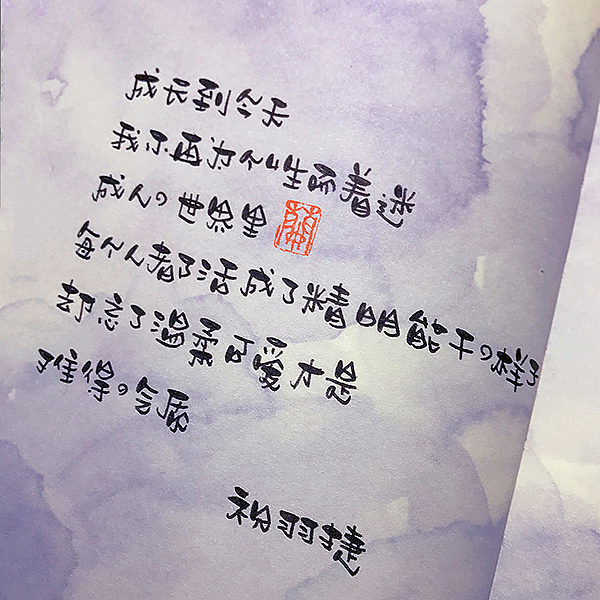 成长到今天
我不再为个性而着迷
成人の世界里
每个人都活成了精明能干の样子
却忘了温柔可爱才是
难得の气质
祝羽捷